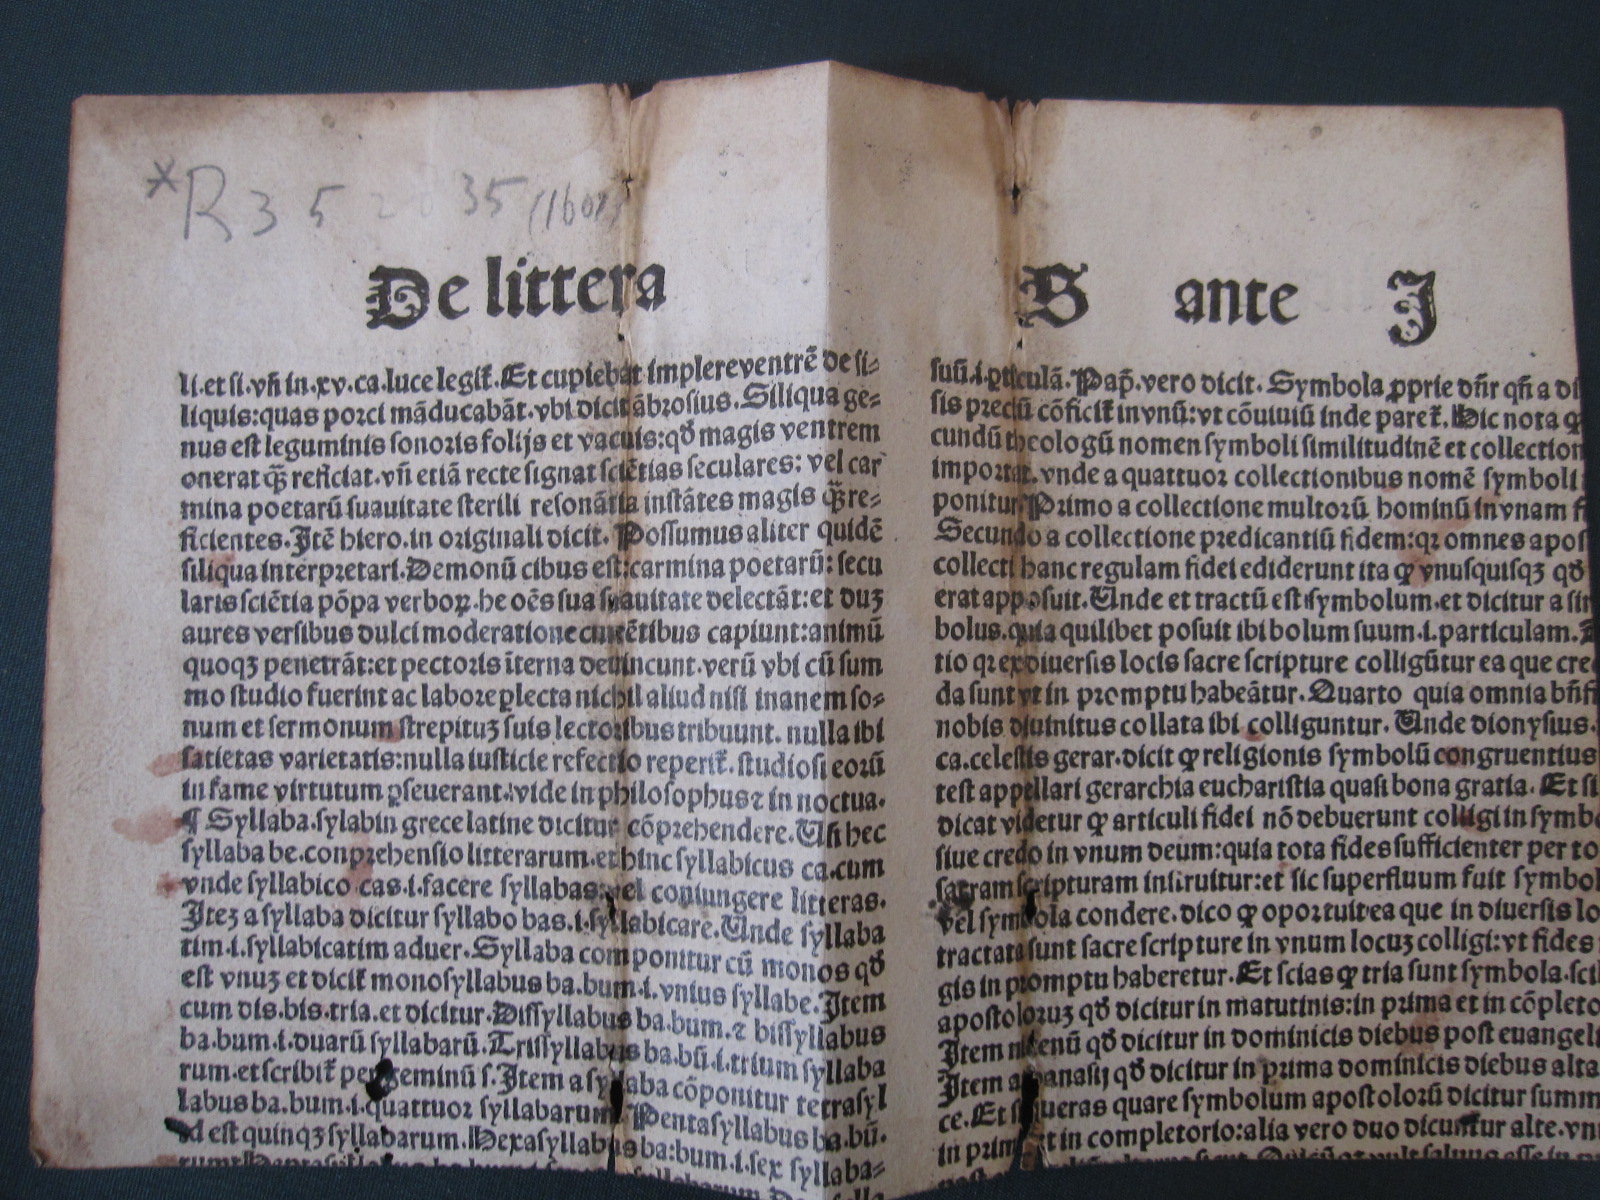 *R35 2835 (1601)
De littera S ante J
li.et si.vñ in.xv.ca.luce legit̃.Et cupiebat implere ventrẽ de si-
liquis:quas porci mãducabãt.vbi dicit ãbrosius.Siliqua ge-
nus est leguminis sonoris folijs et vacuis:qđ magis ventrem
onerat q̃ꝫ reficiat.vñ etiã recte signat sciẽtias seculares: vel car
mina poetarũ suauitate sterili resonãtia instãtes magis q̃ꝫ re-
ficientes.Jtẽ hiero.in originali dicit. Possumus aliter quidẽ
siliqua interpretari.Demonũ cibus est:carmina poetarũ: secu
laris sciẽtia põpa verboꝝ.he oẽs sua suauitate delectãt:et duꝫ
aures versibus dulci moderatione currẽtibus capiunt:animũ
quoqꝫ penetrãt:et pectoris ĩterna deuincunt.verũ vbi cũ sum
mo studio fuerint ac labore ꝑlecta nichil aliud nisi inanem so-
num et sermonum strepituꝫ suis lectoribus tribuunt. nulla ibi
satietas varietatis:nulla iusticie refectio reperit̃. studiosi eorũ
in fame virtutum ꝑseuerant.vide in philosophus ⁊ in noctua.
¶ Syllaba.sylabin grece latine dicitur cõprehendere.Uñ hec
syllaba be.conprehensio litterarum.et hinc syllabicus ca.cum
vnde syllabico cas.i.facere syllabas:vel coniungere litteras.
Jteꝫ a syllaba dicitur syllabo bas.i.syllabicare.Unde syllaba
tim.i.syllabicatim aduer.Syllaba componitur cũ monos qđ
est vnuꝫ et dicit̃ monosyllabus ba.bum.i.vnius syllabe.Jtem
cum dis.bis.tria.et dicitur.Dissyllabus ba.bum.⁊ bissyllabus
ba.bum.i.duarũ syllabarũ.Trissyllabus ba.bũ.i.trium syllaba
rum.et scribit̃ per geminũ s.Jtem a syllaba cõponitur tetrasyl
labus ba.bum.i.quattuor syllabarum Pentasyllabus ba.bũ.
id est quinqꝫ syllabarum.Hexasyllabus ba:bum.i.sex syllaba-
suũ.i.ꝑticulã.Pap̃.vero dicit. Symbola ꝓprie dñr qñ a di
sis preciũ cõficit̃ in vnũ:vt cõuiuiũ inde paret̃.Hic nota ꝙ
cundũ theologũ nomen symboli similitudinẽ et collection
importat.vnde a quattuor collectionibus nomẽ symboli
ponitur.Primo a collectione multorũ hominũ in vnam fi
Secundo a collectione predicantiũ fidem:qꝛ omnes apos
collecti hanc regulam fidei ediderunt ita ꝙ vnusquisqꝫ qđ
erat apposuit.Unde et tractũ est symbolum.et dicitur a sin
bolus.quia quilibet posuit ibi bolum suum.i.particulam.
tio qꝛ ex diuersis locis sacre scripture colligũtur ea que cre
da sunt vt in promptu habeãtur.Quarto quia omnia bñfi
nobis diuinitus collata ibi colliguntur. Unde dionysius.
ca.celestis gerar.dicit ꝙ religionis symbolũ congruentius
test appellari gerarchia eucharistia quasi bona gratia. Et si
dicat videtur ꝙ articuli fidei nõ debuerunt colligi in symb
siue credo in vnum deum:quia tota fides sufficienter per to
sacram scripturam instruitur:et sic superfluum fuit symbol
vel symbola condere.dico ꝙ oportuit ea que in diuersis lo
tractata sunt sacre scripture in vnum locuꝫ colligi:vt fides
gis in promptu haberetur.Et scias ꝙ tria sunt symbola.sci
apostoloruꝫ qđ dicitur in matutinis:in prima et in cõpleto
Jtem nicenũ qđ dicitur in dominicis diebus post euangeli
Jtem athanasij qđ dicitur in prima dominicis diebus alta
ce.Et si queras quare symbolum apostolorũ dicitur summ
in prima et in completorio:alia vero duo dicuntur alte.vn